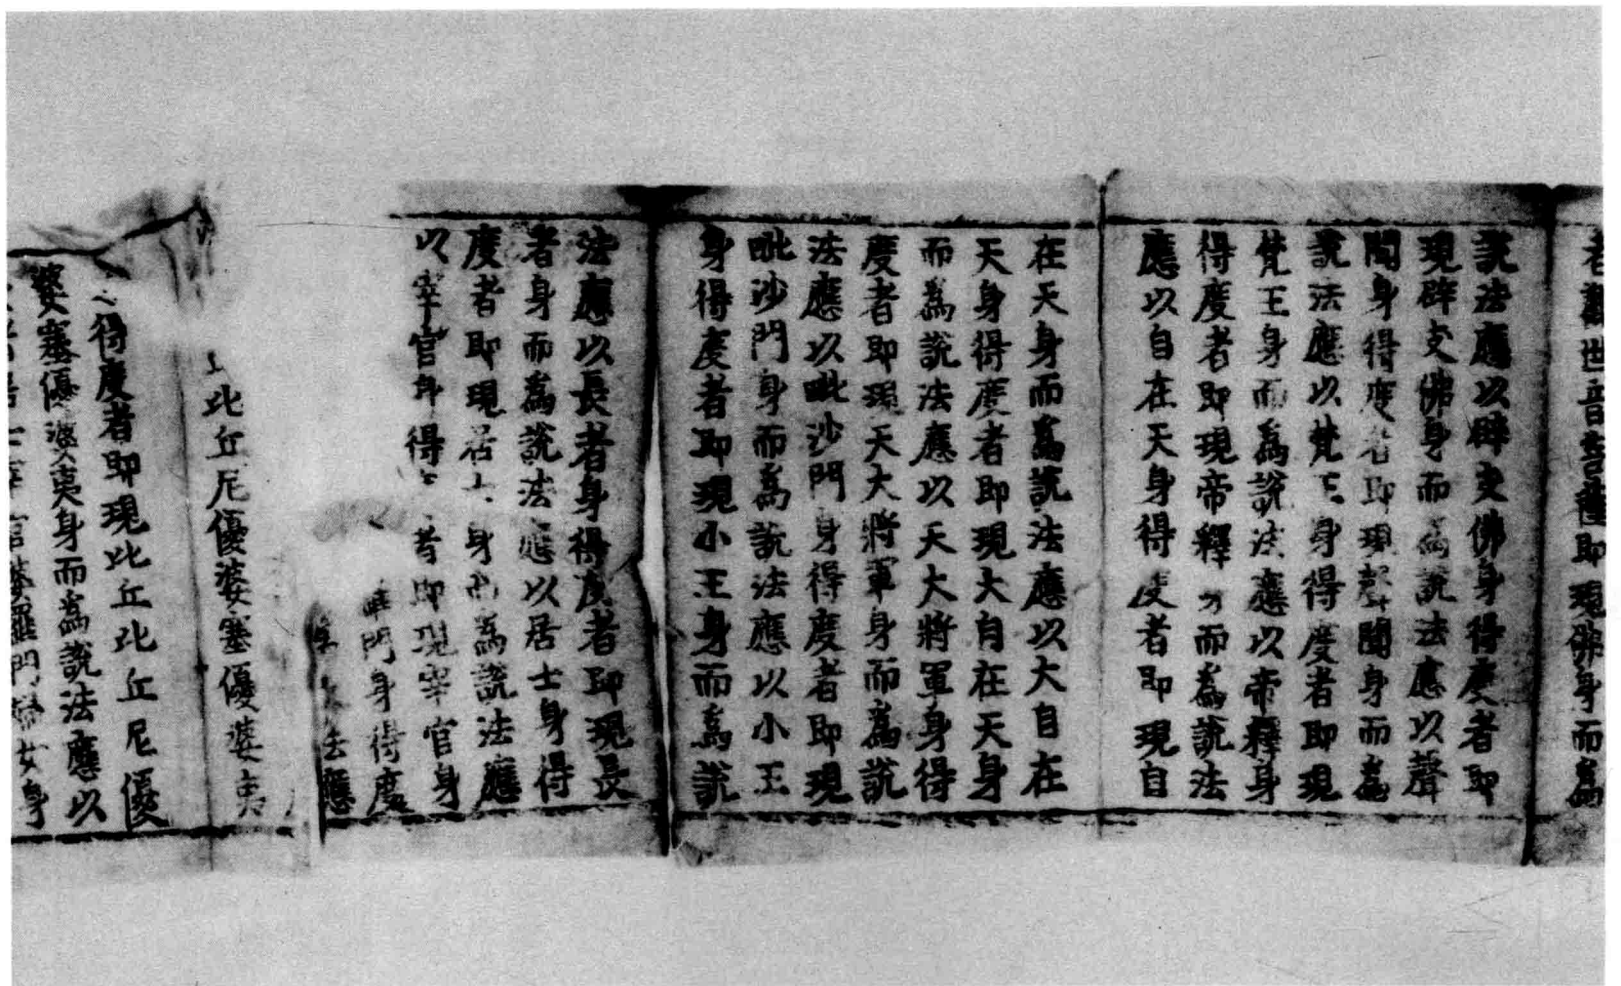 者觀世音菩薩即現佛身而為
說法應以辟支佛身得度者即
現辟支佛身而為說法應以聲
聞身得度者即現聲聞身而為
說法應以梵王身得度者即現
梵王身而為說法應以帝釋身
得度者即現帝釋身而為說法
應以自在天身得度者即現自
在天身而為說法應以大自在
天身得度者即現大自在天身
而為說法應以天大將軍身得
度者即現天大將軍身而為說
法應以毗沙門身得度者即現
毗沙門身而為說法應以小王
身得度者即現小王身而為說
法應以長者身得度者即現長
者身而為說法應以居士身得
度者即現居士身而為說法應
以宰官身得度者即現宰官身
門身得度
法應
比丘尼優婆塞優婆夷
得度者即現比丘比丘尼優
婆塞優婆夷身而為說法應以
居士宰官婆羅門婦女身